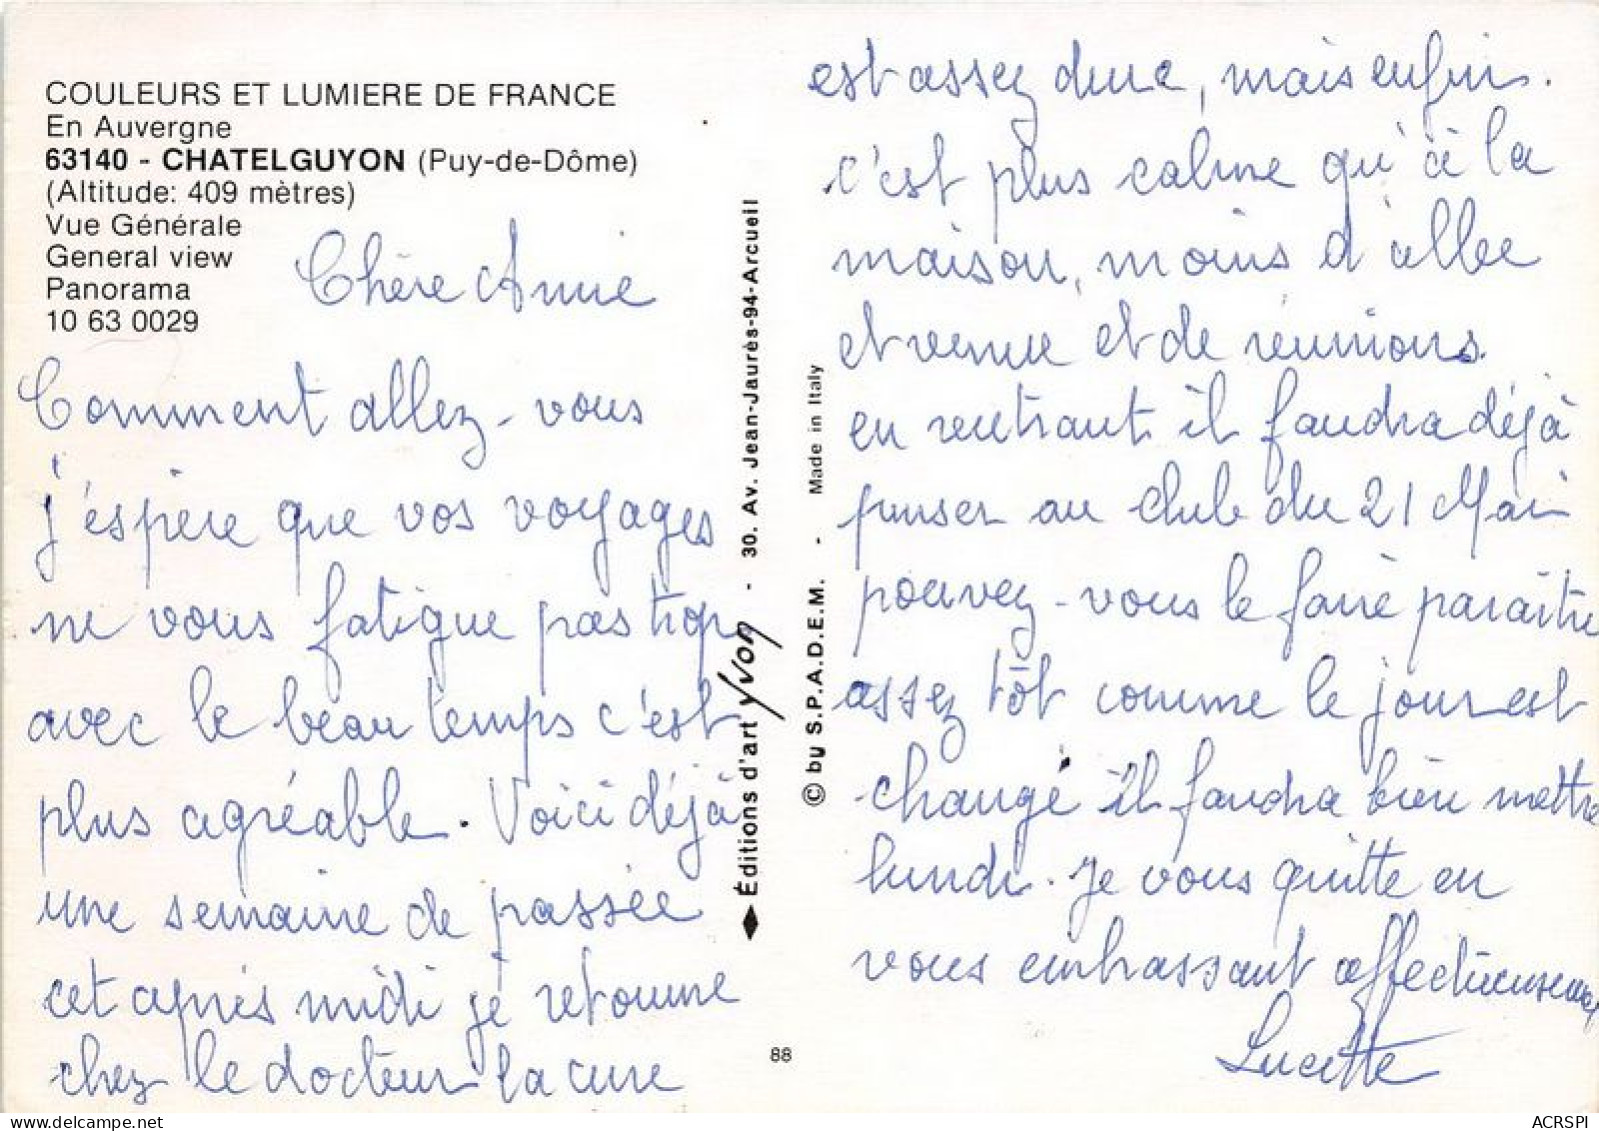 COULEURS ET LUMIERE DE FRANCE
En Auvergne
63140 - CHATELGUYON (Puy-de-Dôme)
(Altitude: 409 mètres)
Vue Générale
General view
Panorama
10 63 0029
Chère Annie
Comment allez-vous
j'espère que vos voyages
ne vous fatigue pas trop
avec le beau temps c'est
plus agréable. Voici déjà
une semaine de passée
cet après midi je retourne
chez le docteur la cure
Éditions d'art Yvon - 30. Av. Jean-Jaurès-94-Arcueil
© by S.P.A.D.E.M. - Made in Italy
88
est assez dure, mais enfin.
c'est plus calme qu'à la
maison, moins d'allee
et venue et de réunions.
en rentrant il faudra déjà
penser au club du 21 Mai
pouvez-vous le faire paraitre
assez tôt comme le jour est
changé il faudra bien mettre
lundi. Je vous quitte en
vous embrassant affectueusement
Lucette
ACRSPI